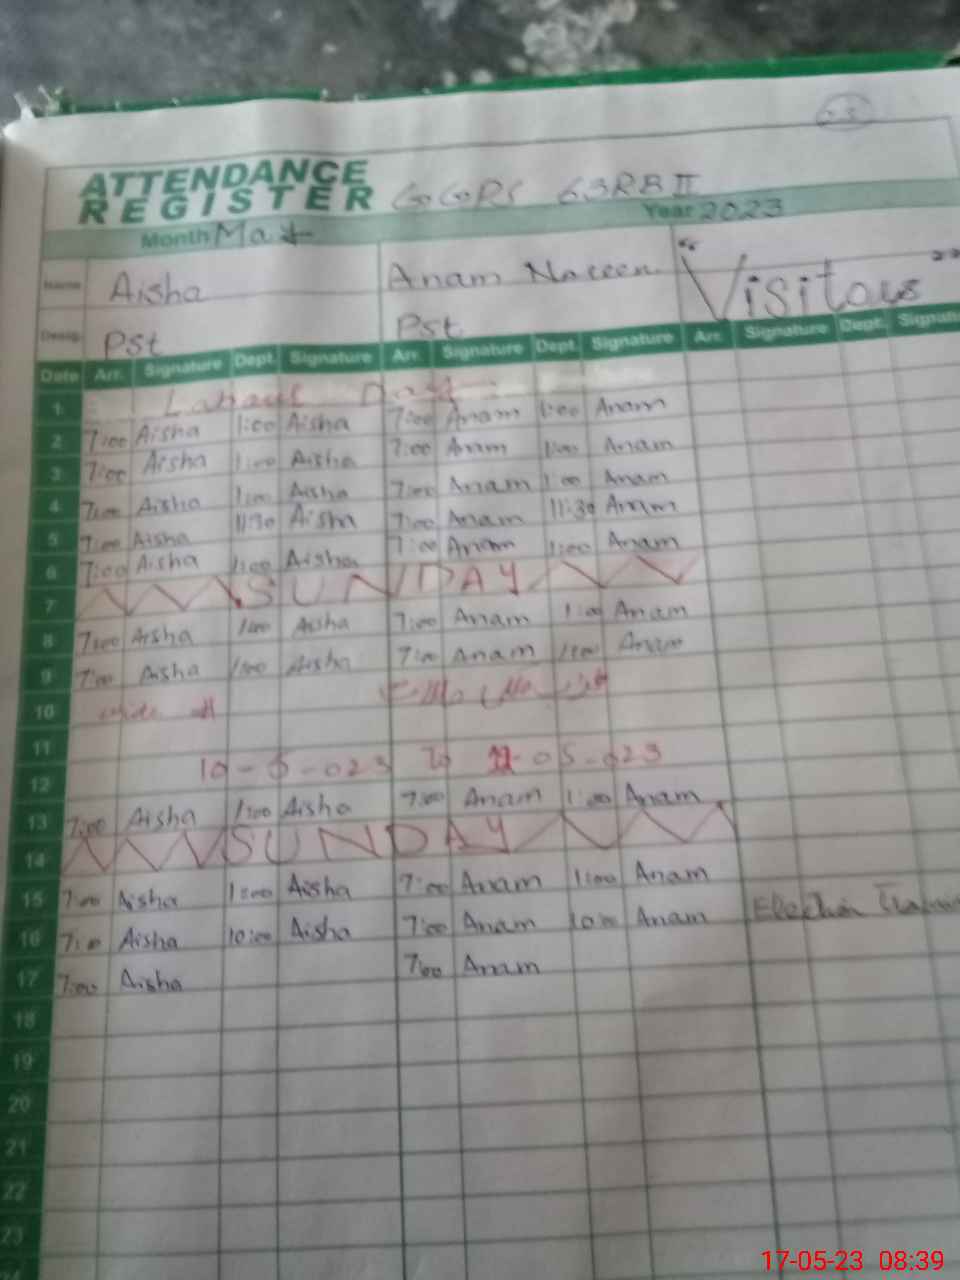 ATTENDANCE
REGISTER GGPS 63RB II
Month May Year 2023
Name Aisha Anam Naceen "Visitors"
Desig. Pst Pst
Date Arr. Signature Dept. Signature Arr. Signature Dept. Signature Arr. Signature Dept. Signatu
1 Labour Day
2 7:00 Aisha 1:00 Aisha 7:00 Anam 1:00 Anam
3 7:00 Aisha 1:00 Aisha 7:00 Anam 1:00 Anam
4 7:00 Aisha 1:00 Aisha 7:00 Anam 1:00 Anam
5 7:00 Aisha 11:30 Aisha 7:00 Anam 11:30 Anam
6 7:00 Aisha 1:00 Aisha 7:00 Anam 1:00 Anam
7 SUNDAY
8 7:00 Aisha 1:00 Aisha 7:00 Anam 1:00 Anam
9 7:00 Aisha 1:00 Aisha 7:00 Anam 1:00 Anam
10
11
10-5-023 To 11-05-023
12
13 7:00 Aisha 1:00 Aisha 7:00 Anam 1:00 Anam
14 SUNDAY
15 7:00 Aisha 1:00 Aisha 7:00 Anam 1:00 Anam
16 7:00 Aisha 10:00 Aisha 7:00 Anam 10:00 Anam Election
17 7:00 Aisha 7:00 Anam
18
19
20
21
22
23
17-05-23 08:39